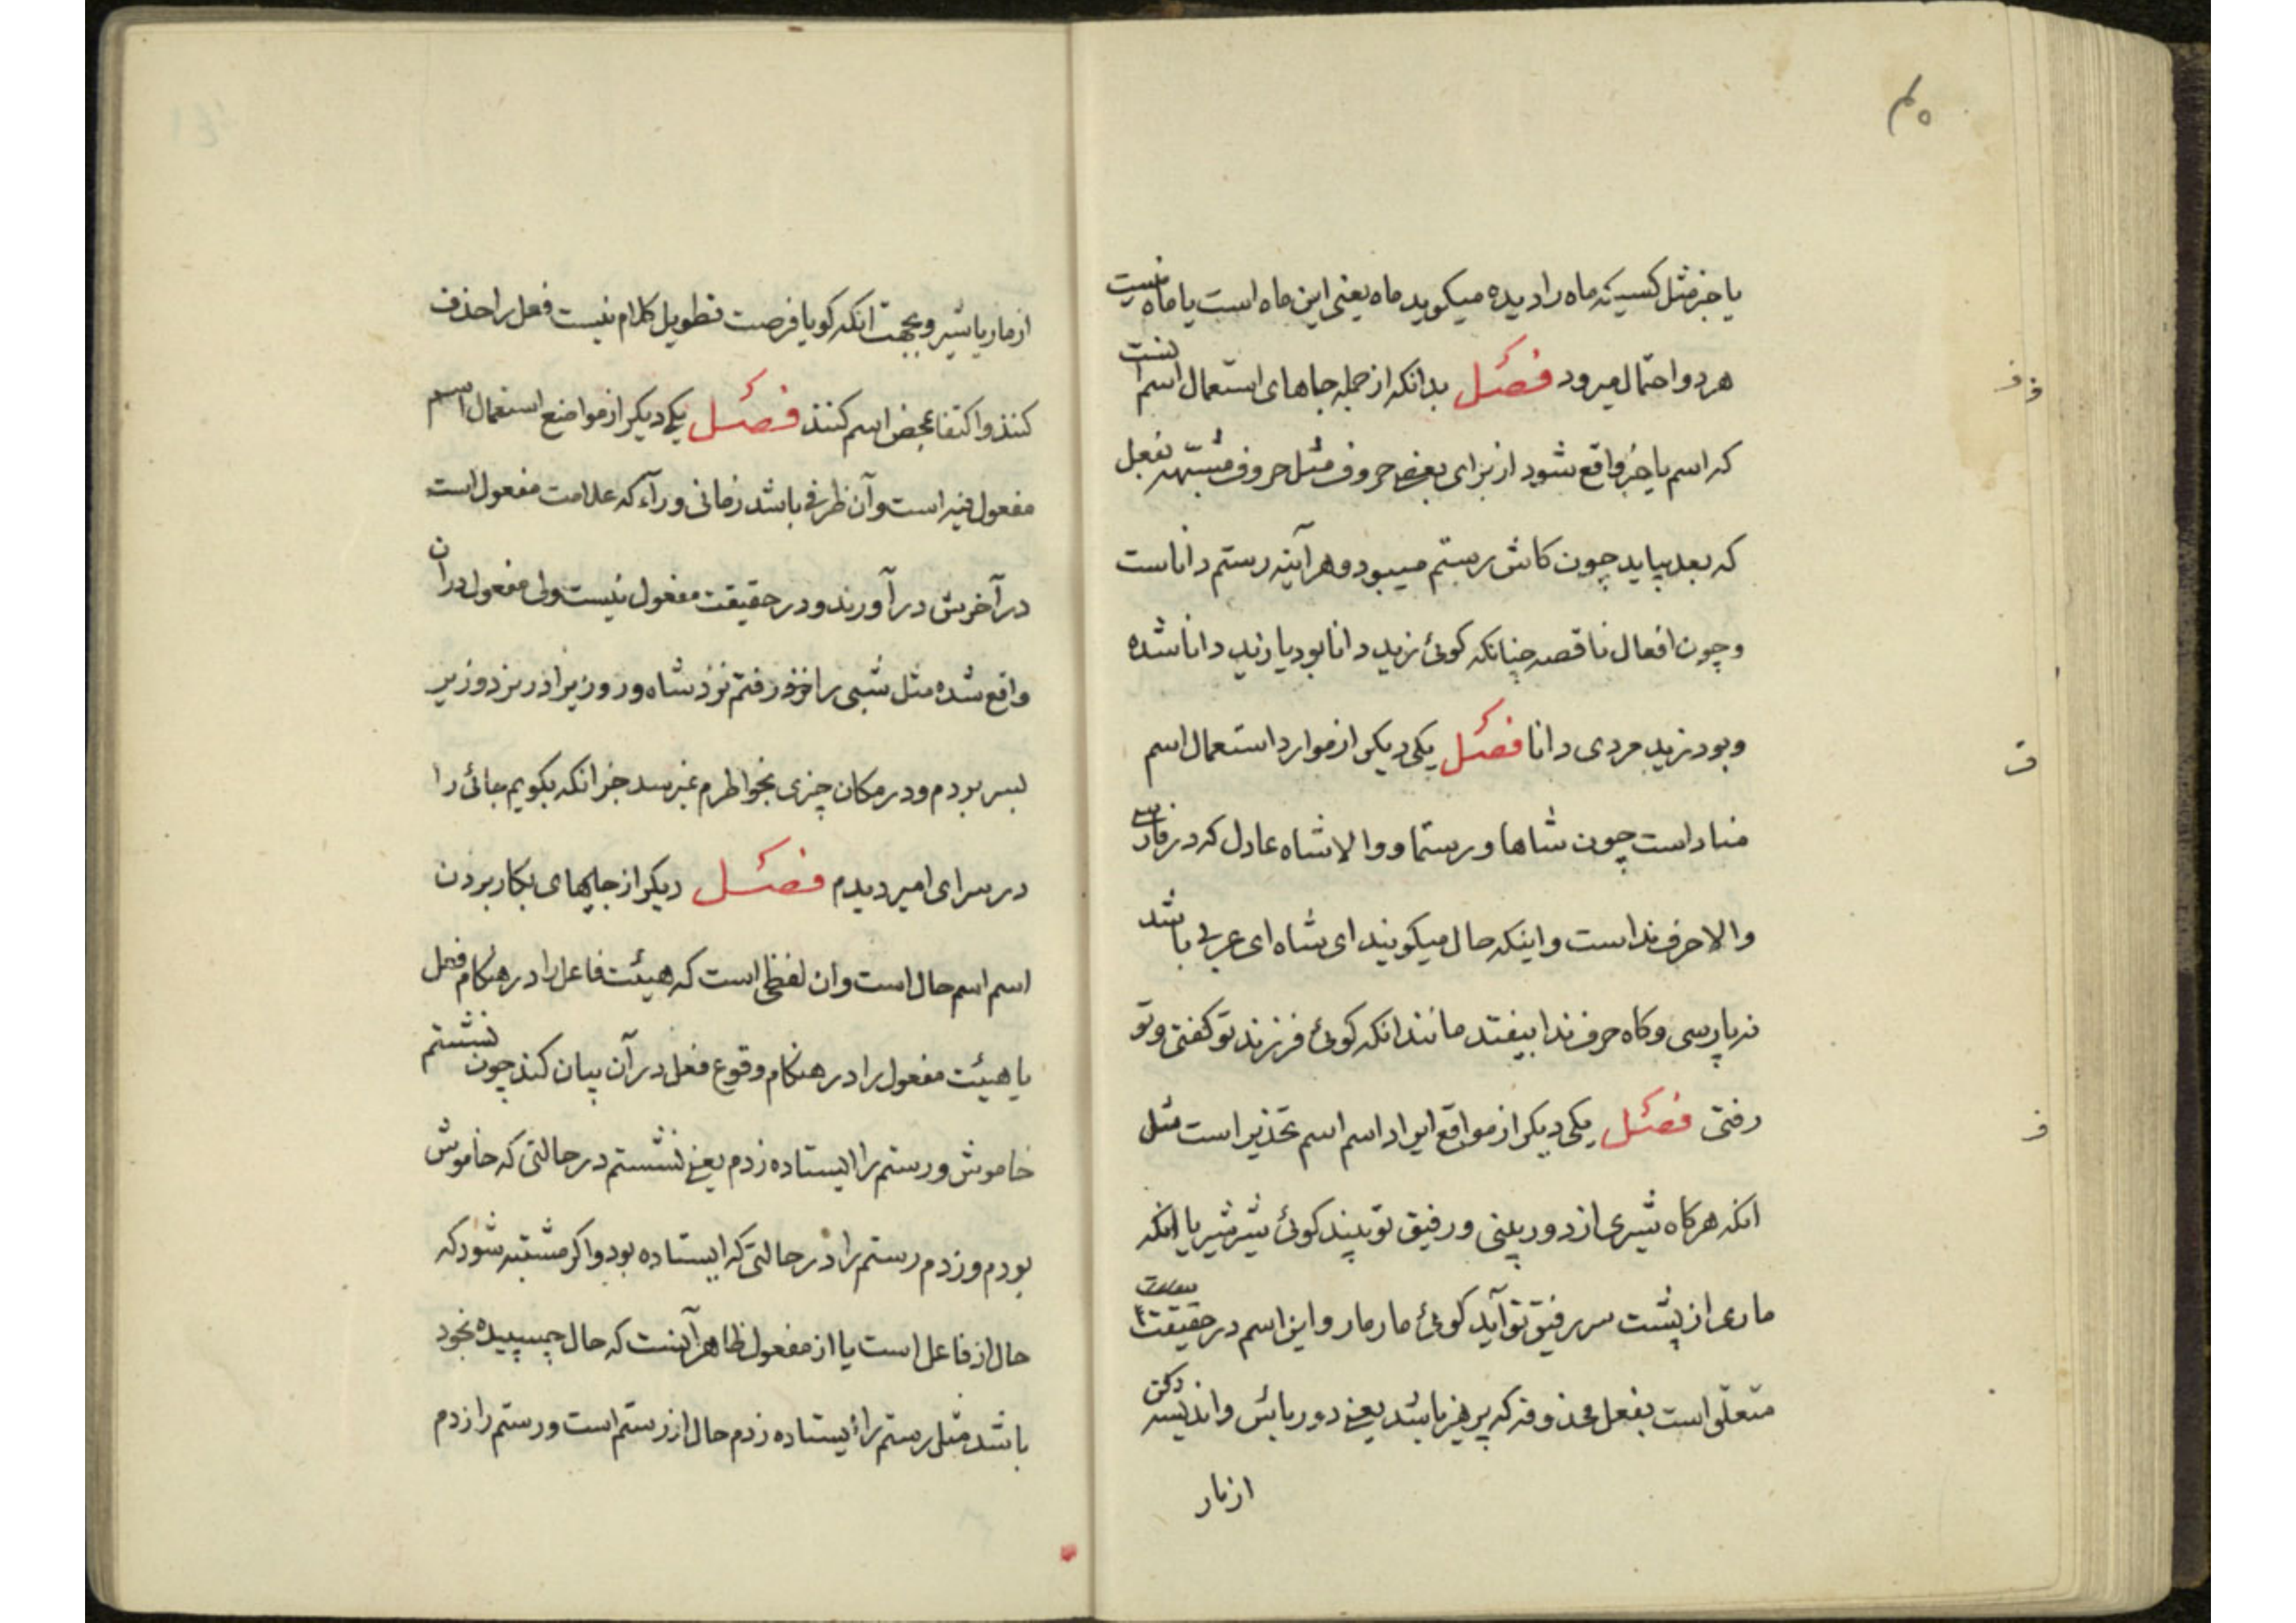 ۴۰
یا خبر مثل کسیکه ماه را دیده میکوید ماه یعنی این ماه است یا ماه نیست
هر دو احتمال میرود فصل بدانکه از جمله جاهای استعمال اسم انست
که اسم یا خبر واقع شود از برای بعضی حروف مثل حروف مشبهه بفعل
که بعد بیاید چون کاش رستم میبود و هر آینه رستم داناست
و چون افعال ناقصه چنانکه کوئی زید دانا بود یا زید دانا شده
و بود زید مردی دانا فصل یکی دیکر از موارد استعمال اسم
مناد است چون شاها و رستما و والا شاه عادل که در فارسی
والا حرف نداست و اینکه حال میکویند ای شاه ای عربی باشد
نه پارسی و کاه حرف ندا بیفتد مانند انکه کوئی فرزند تو کفتی و تو
رفتی فصل یکی دیکر از مواقع ایراد اسم اسم تحذیر است مثل
انکه هرکاه شیری از دور بینی و رفیق تو بیند کوئی شیر شیر یا انکه
ماری از پشت سر رفیق تو آید کوئی مار مار و این اسم در حقیقت
متعلق است بفعل محذوف که پرهیز باشد یعنی دور باش و اندیشه کن
از مار
از مار یا شیر و بجهت انکه کویا فرصت تطویل کلام نیست فعل را حذف
کنند و اکتفا بمحض اسم کنند فصل یکی دیکر از مواضع استعمال اسم
مفعول فیه است و آن ظرفی باشد زمانی و راء که علامت مفعول است
در آخرش در آورند و در حقیقت مفعول نیست ولی مفعول در ان
واقع شده مثل شبی را رفتم نزد شاه و روزیرا در نزد وزیر
بسر بردم و در مکان چیزی بخواطرم نمیرسد جز انکه بکویم جائی را
در سرای امیر دیدم فصل دیکر از جایهای بکار بردن
اسم اسم حال است و ان لفظی است که هیئت فاعل را در هنکام فعل
یا هیئت مفعول را در هنکام وقوع فعل در آن بیان کند چون نشستم
خاموش و رستم را ایستاده زدم یعنی نشستم در حالتی که خاموش
بودم و زدم رستم را در حالتی که ایستاده بود و اکر مشتبه شود که
حال از فاعل است یا از مفعول ظاهر آنست که حال چسپیده بخود
باشد مثل رستم را ایستاده زدم حال از رستم است و رستم را زدم